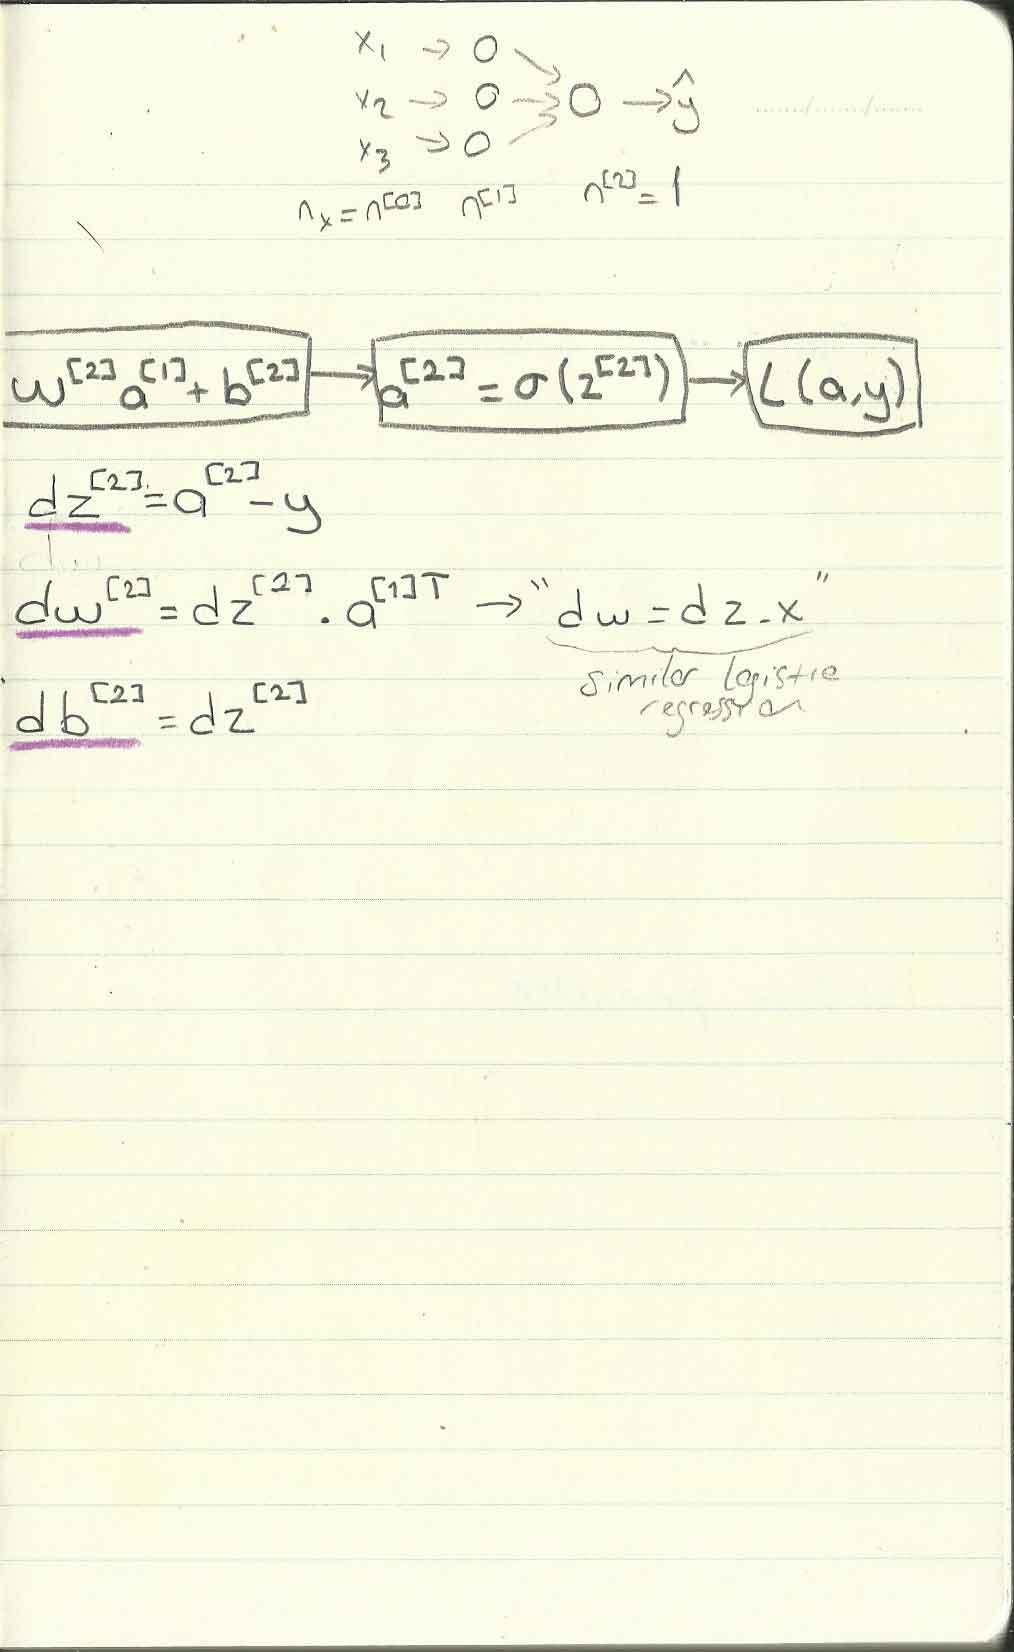 x₁ → O
x₂ → O → O → ŷ
x₃ → O
nₓ = n^[0] n^[1] n^[2] = 1
w^[2] a^[1] + b^[2] → a^[2] = σ(z^[2]) → L(a,y)
dz^[2] = a^[2] - y
dw^[2] = dz^[2] . a^[1]T → "dw = dz . x"
similar logistic
regression
db^[2] = dz^[2]